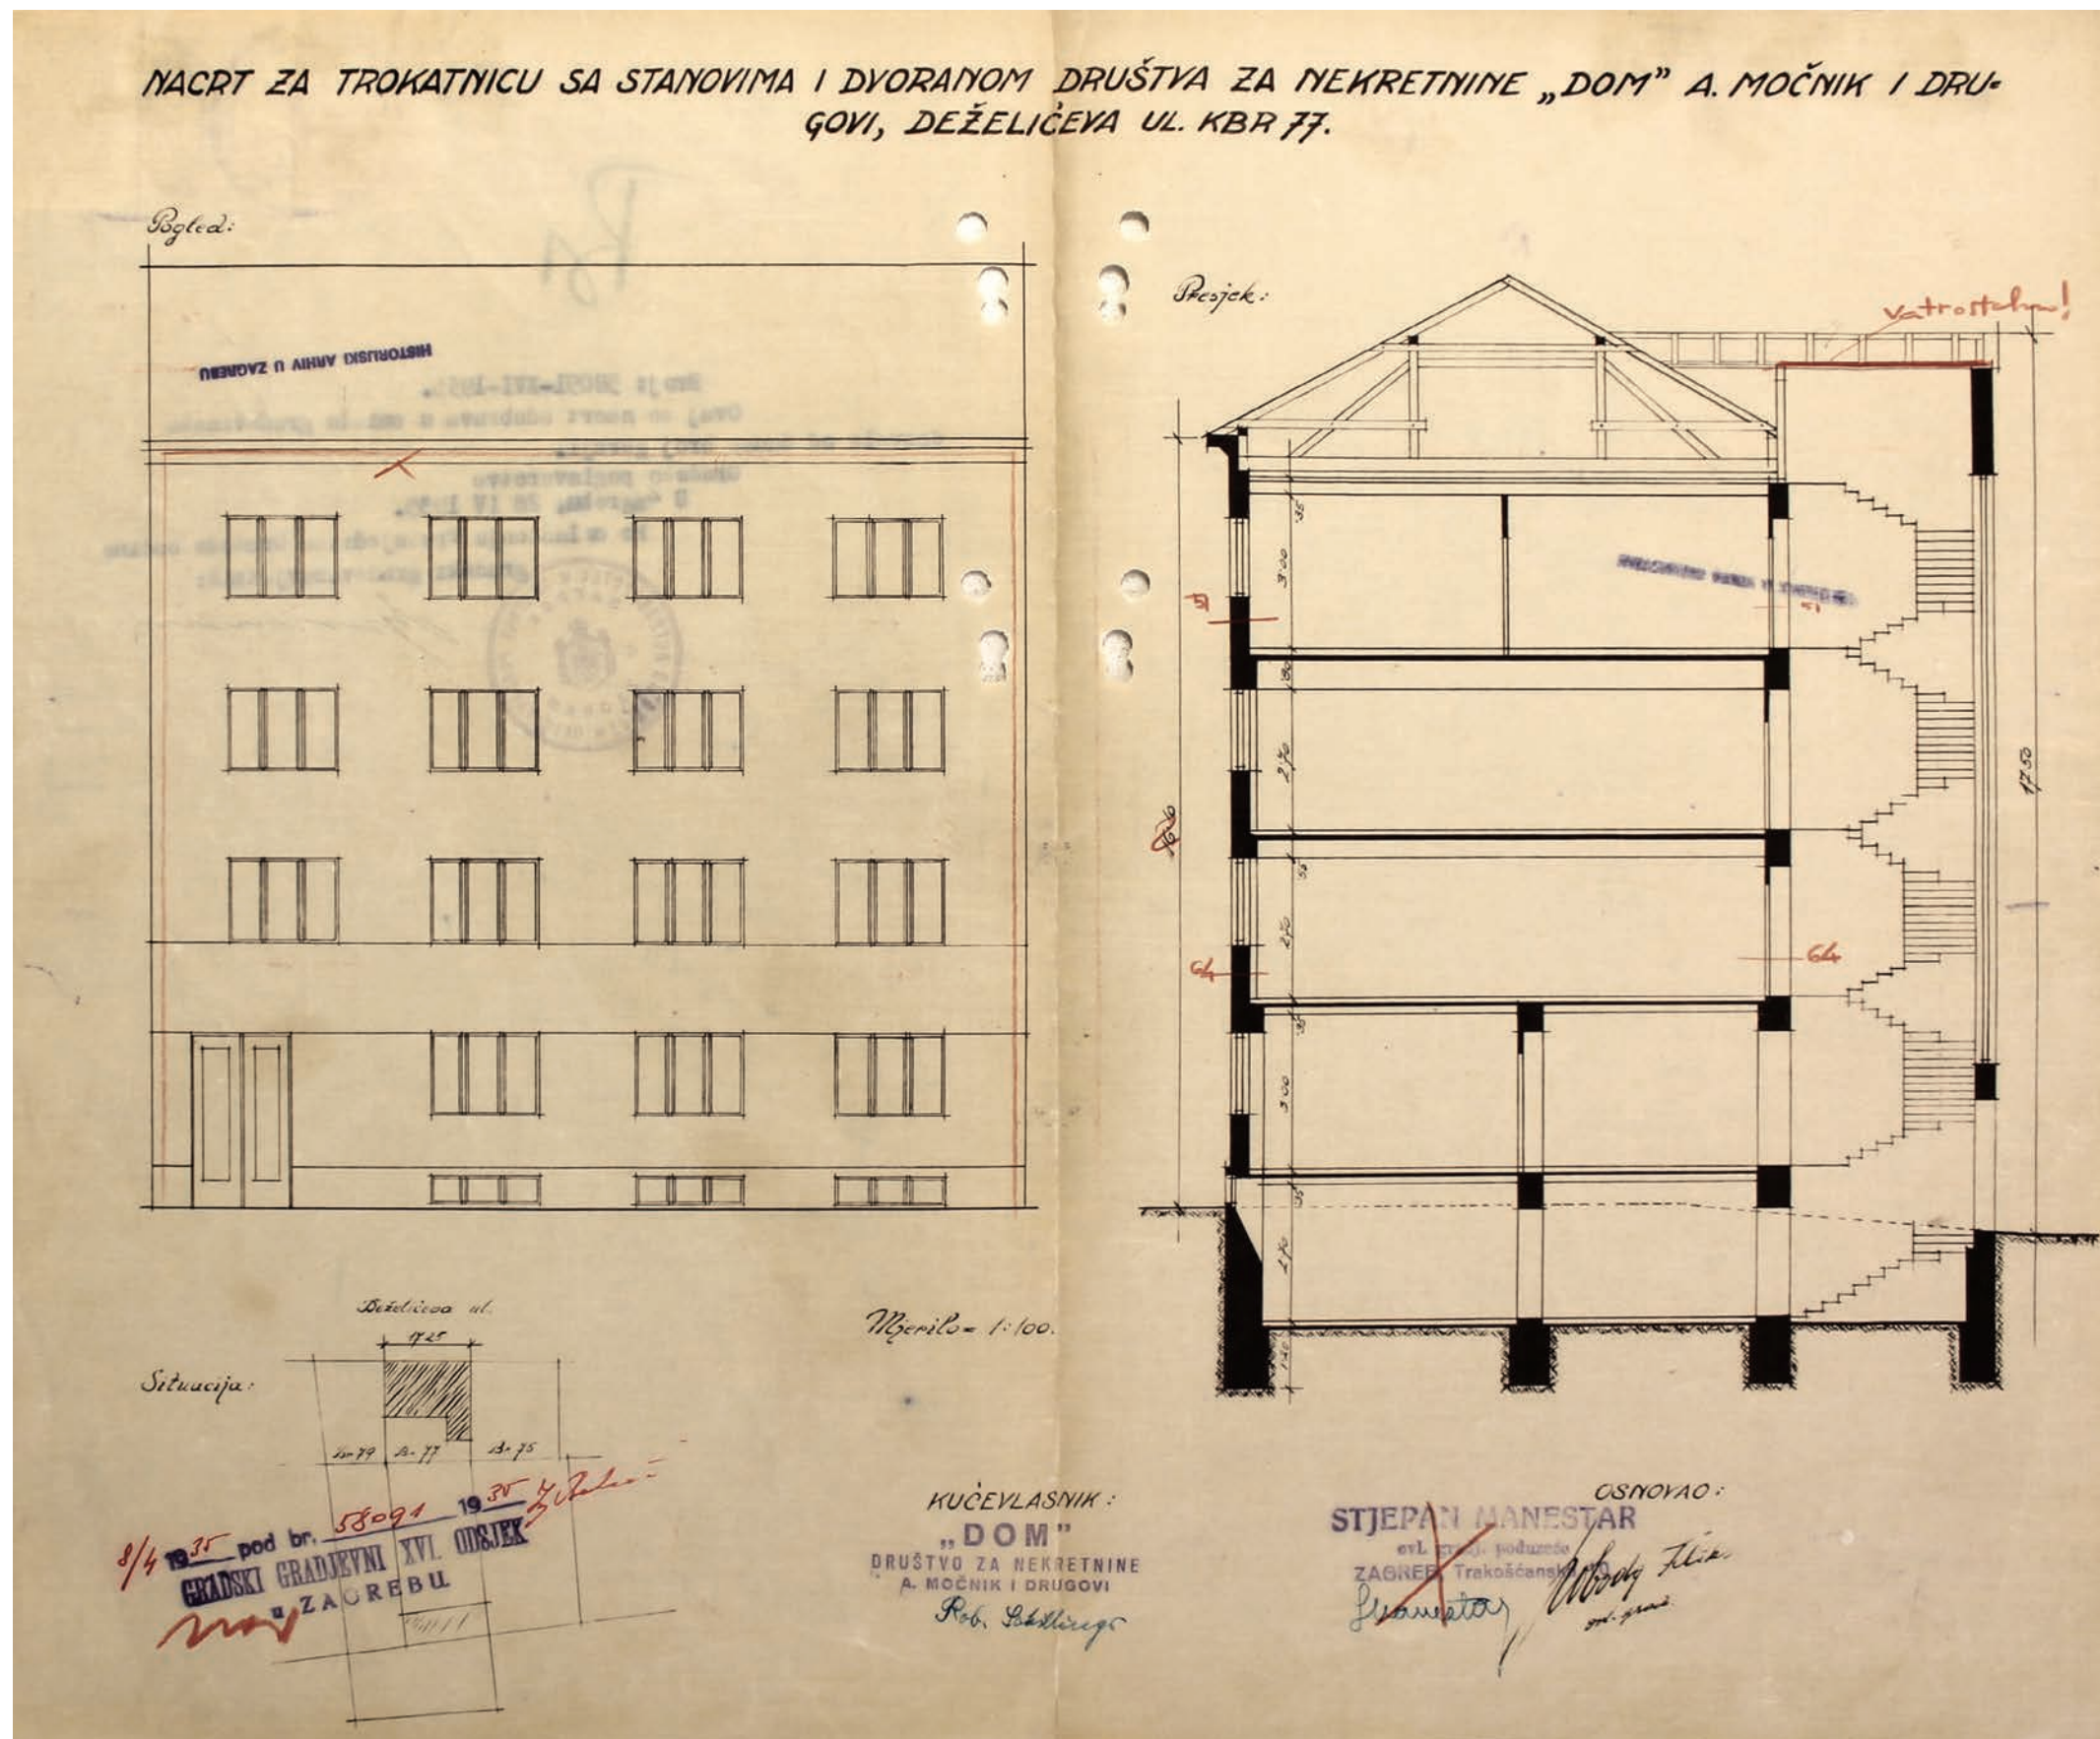 NACRT ZA TROKATNICU SA STANOVIMA I DVORANOM DRUŠTVA ZA NEKRETNINE „DOM” A. MOČNIK I DRU-
GOVI, DEŽELIĆEVA UL. KBR 77.
Pogled:
HISTORIJSKI ARHIV U ZAGREBU
Presjek:
35
3·00
51
51
30
2·70
17·50
35
2·70
64
64
35
3·00
35
2·70
Deželićeva ul.
17·25
Situacija:
Br. 77
Br. 75
Mjerilo = 1:100.
8/4 1935 pod br. 58091 1935
GRADSKI GRADJEVNI XVI. ODSJEK
u ZAGREBU
KUĆEVLASNIK:
„DOM”
DRUŠTVO ZA NEKRETNINE
A. MOČNIK I DRUGOVI
Rob.
OSNOVAO:
STJEPAN MANESTAR
ovl. gradj. poduzeće
ZAGREB, Trakošćanska